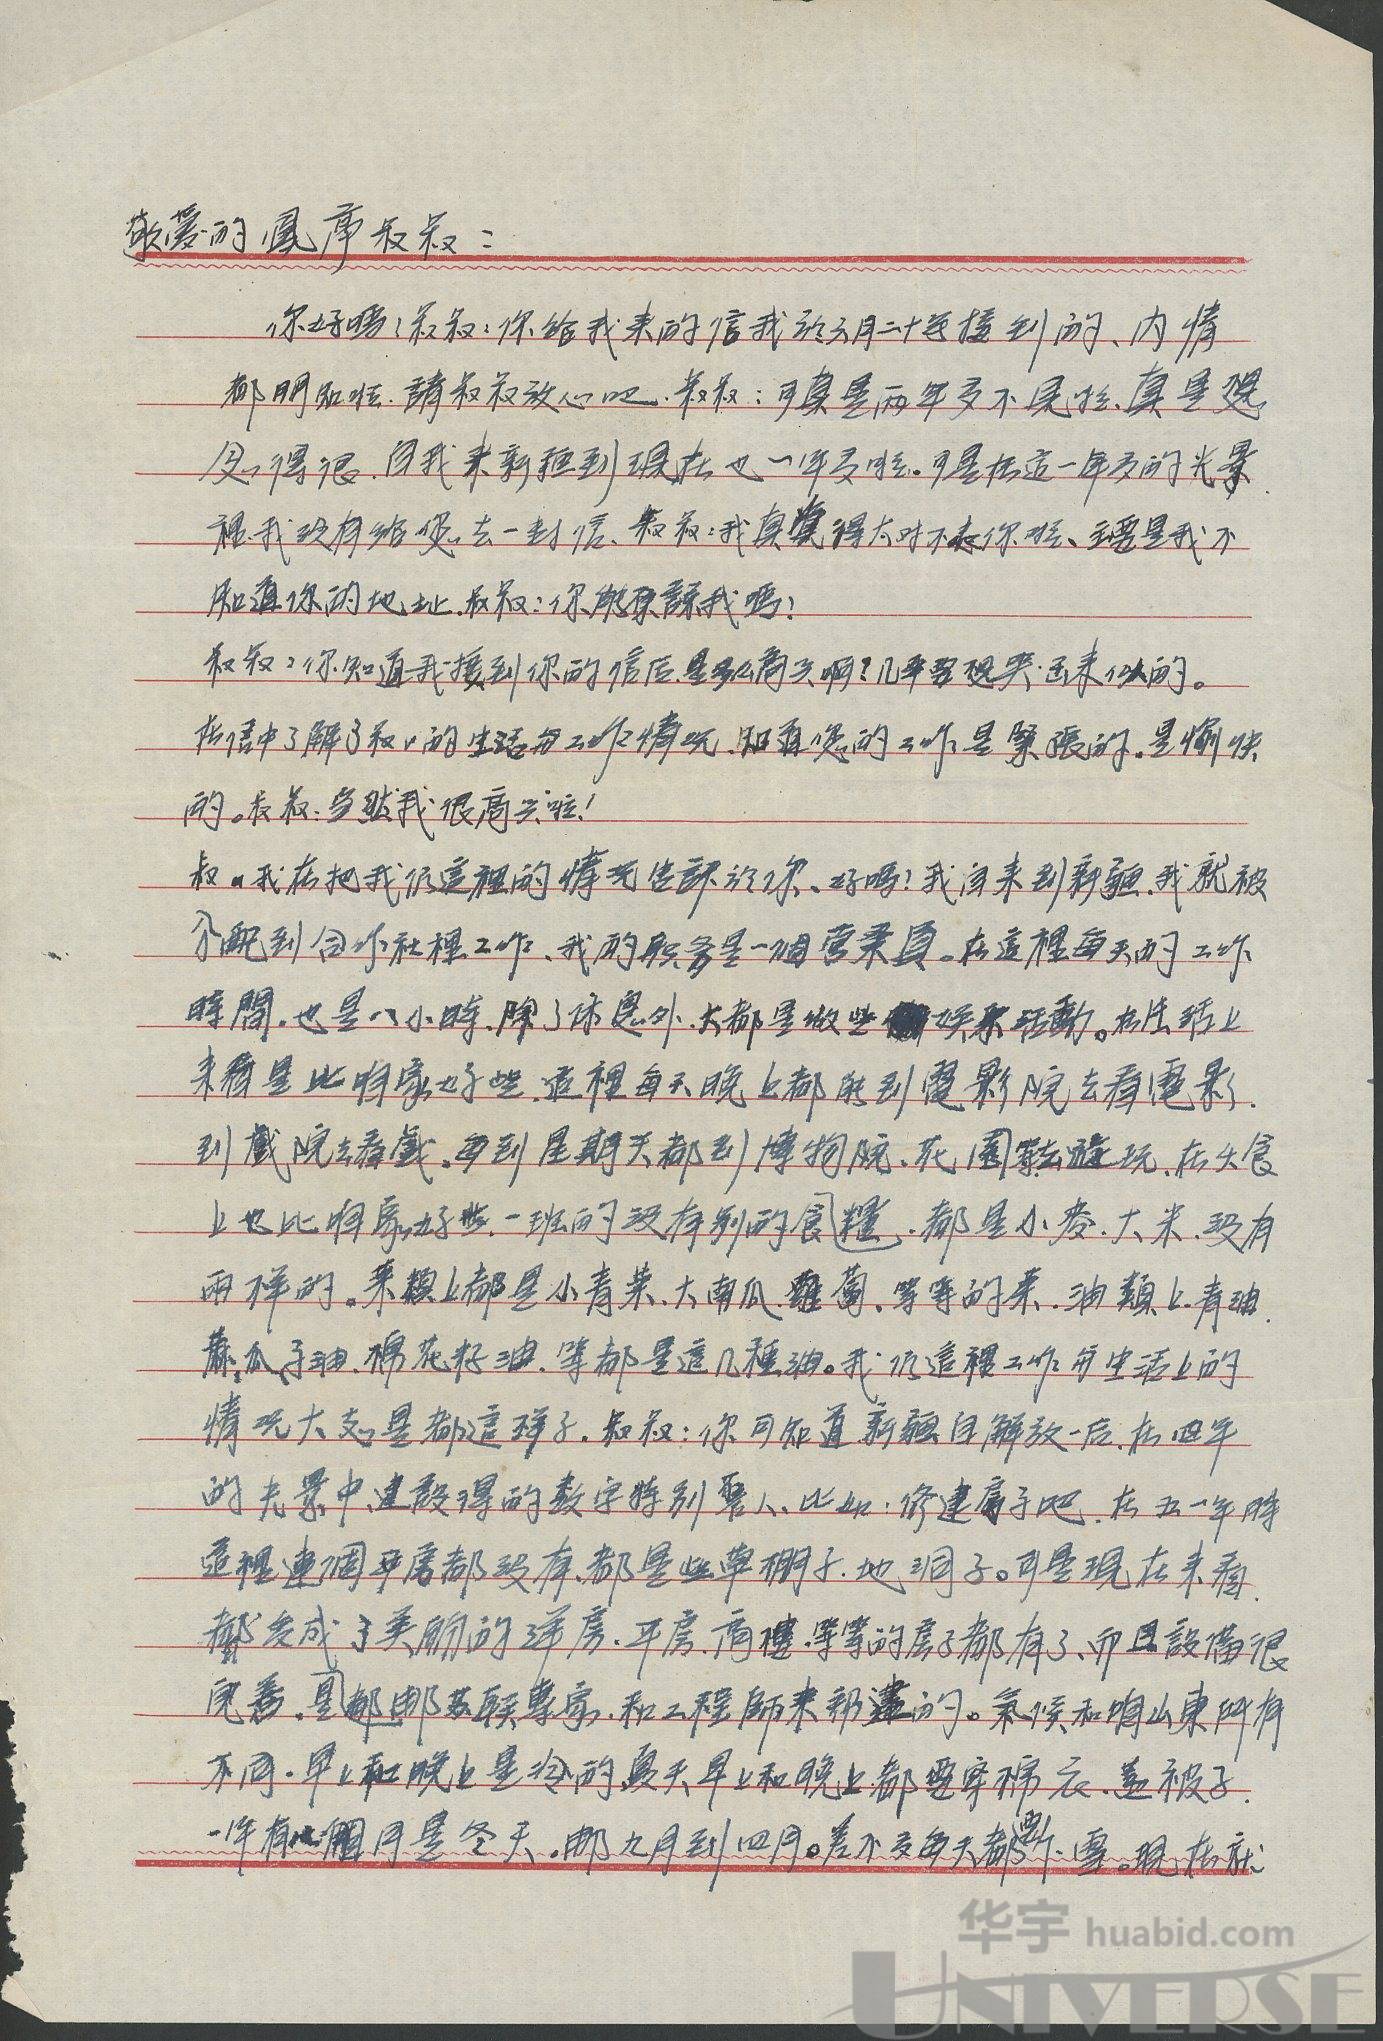 敬爱的鳳庠叔叔：
你好嗎？叔叔：你给我来的信我於六月二十号接到的、内情
都明知啦.請叔叔放心吧.叔叔：可真是两年多不見啦、真是想
念得很.自我来新疆到现在也一年多啦。可是在這一年多的光景
裡我没有给您去一封信.叔叔：我真覺得太对不起你啦、主要是我不
知道你的地址.叔叔：你能原諒我嗎？
叔叔：你知道我接到你的信后是多么高兴啊？几乎要想哭出来似的。
在信中了解了叔〃的生活与工作情况.知道您的工作是緊張的。是愉快
的。叔叔：当然我很高兴啦！
叔〃我在把我们這裡的情况告訴於你、好嗎？我自来到新疆.我就被
分配到合作社裡工作、我的职务是一個营業員。在這裡每天的工作
時間.也是八小時.除了休息外.大都是做些娱樂活動。在生活上
来看是比咱家好些.這裡每天晚上都能到電影院去看電影.
到戲院去看戲。每到星期天都到博物院、花園等去遊玩.在伙食
上也比咱家好些.一班的没有别的食糧.都是小麥.大米.没有
两样的。菜類上都是小青菜.大南瓜.蘿蔔、等等的菜.油類上.青油.
蔴瓜子油.棉花籽油.等都是這几種油。我们這裡工作与生活上的
情况大致是都這样子.叔叔：你可知道新疆自解放后.在四年
的光景中.建設得的数字特别驚人、比如：修建房子吧.在五一年時
這裡連個平房都没有.都是些草棚子.地洞子。可是現在来看.
都变成了美丽的洋房.平房.商樓.等等的房子都有了、而且設備很
完善.是都由苏联專家.和工程師来帮建的。氣候和咱山東所有
不同.早上和晚上是冷的夏天早上和晚上都要穿棉衣.盖被子.
一年有八個月是冬天.由九月到四月。差不多每天都要下雪。現在就
华宇 huabid.com
UNIVERSE